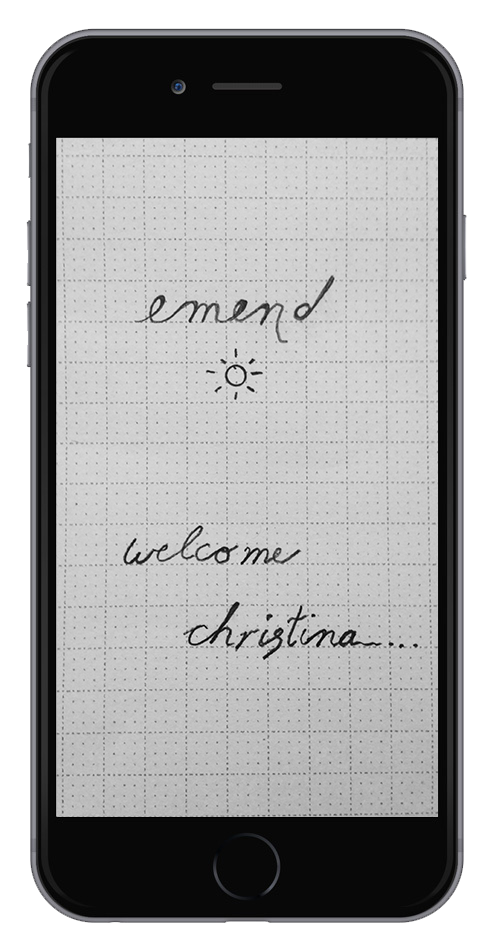 emend
welcome
christina....